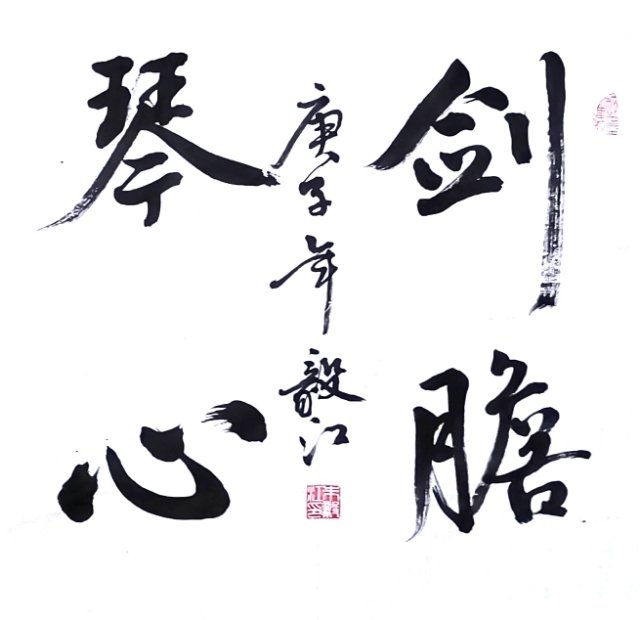 剑膽
琴心
庚子年毅江